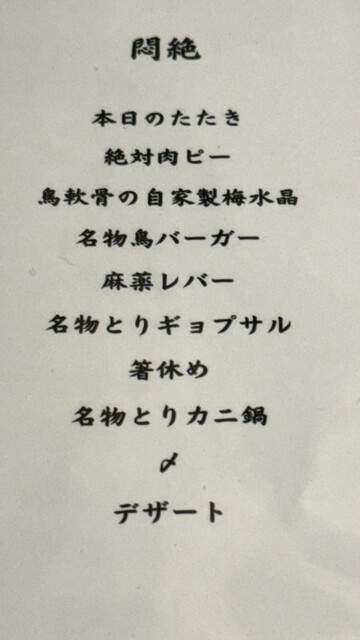 悶絶
本日のたたき
絶対肉ピー
鳥軟骨の自家製梅水晶
名物鳥バーガー
麻薬レバー
名物とりギョプサル
箸休め
名物とりカニ鍋
〆
デザート